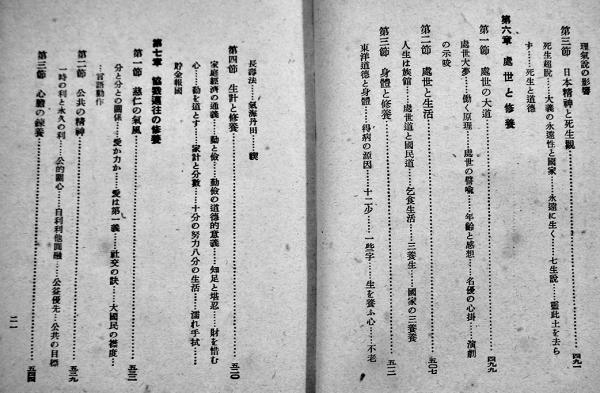 理氣說の影響
第三節 日本精神と死生觀……四九一
死生超脫……大義の永遠性と國家……永遠に生く……七生說……靈此土を去ら
ず……死生と道德
第六章 處世と修養
第一節 處世の大道……四九九
處世大夢……働く原理……處世の譬喩……年齡と感想……名優の心掛……演劇
の示唆
第二節 處世と生活……五〇七
人生は旅館……處世道と國民道……乞食生活……三養生……國家の三養養
第三節 身體と修養……五一二
東洋道德と身體……得病の源因……十二少……一些字……生を養ふ心……不老
長壽法……氣海丹田……禊
第四節 生計と修養……五二〇
家庭經濟の通義……勤と儉……勤儉の道德的意義……知足と堪忍……財を惜む
心……勤を道とす……家計と分數……十分の努力八分の生活……濡れ手拭……
貯金報國
第七章 協戮邁往の修養
第一節 慈仁の氣風……五三二
分と分との關係……愛か力か……愛は第一義……社交の訣……大國民の襟度……
言語動作
第二節 公共の精神……五三九
一時の利と永久の利……公的觀心……自利利他圓融……公益優先……公共の目標
第三節 心膽の練養……五四四
二一